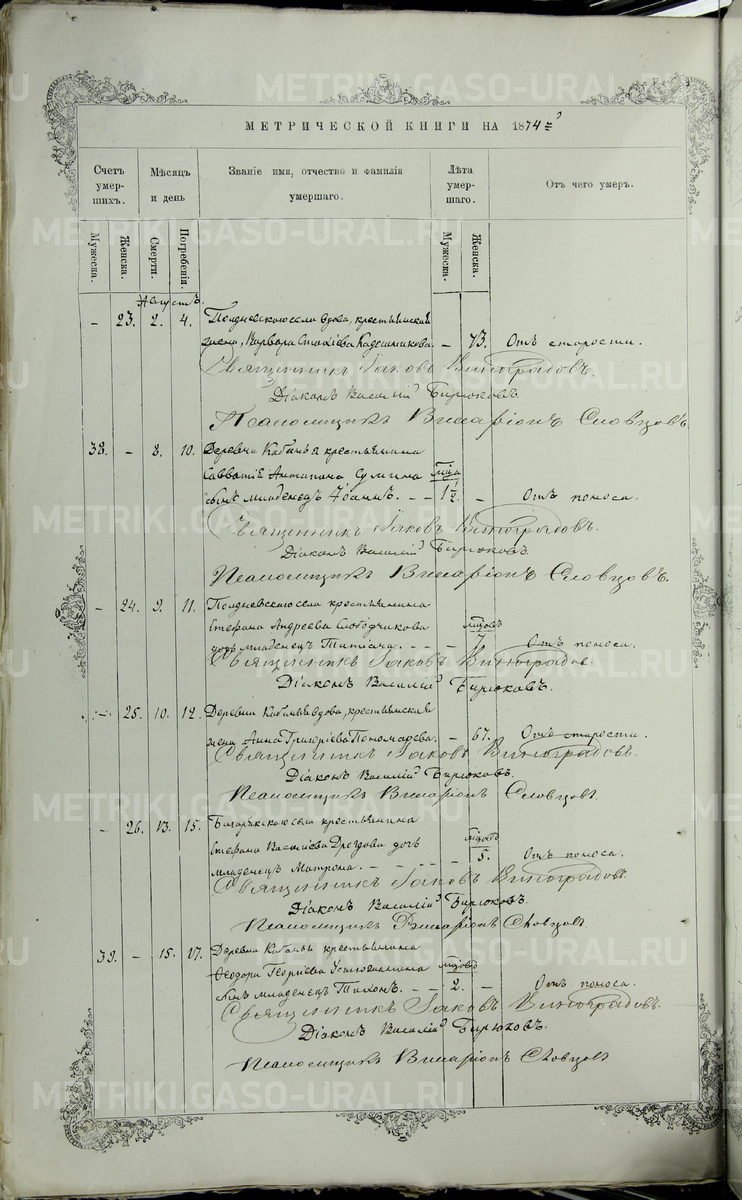 МЕТРИЧЕСКОЙ КНИГИ НА 1874 г
Счетъ умер- шихъ.
Мѣсяцъ и день
Званіе имя, отчество и фамилія умершаго.
Лѣта умер- шаго.
Отъ чего умеръ.
Мужеска.
Женска.
Смерти.
Погребенія.
Мужеска.
Женска.
Августъ.
- 23. 2. 4. Полдневскаго села вдова, крестьянская
жена, Варвара Кадошникова. - 73. Отъ старости.
Священникъ Іаковъ Виноградовъ.
Діаконъ Василій Бирюковъ.
Псаломщикъ Виссаріонъ Словцовъ.
38. - 8. 10. Деревни Кабаньей крестьянина
Савватія Антипина сынъ младенецъ Іоаннъ. - - 1 1/2 - Отъ поноса.
Священникъ Іаковъ Виноградовъ.
Діаконъ Василій Бирюковъ.
Псаломщикъ Виссаріонъ Словцовъ.
- 24. 9. 11. Полдневскаго села крестьянина
Стефана Андреева Слободчикова мѣсяцовъ
дочь младенецъ - - - 7. Отъ поноса.
Священникъ Іаковъ Виноградовъ.
Діаконъ Василій Бирюковъ.
- 25. 10. 12. Деревни Кабаньей вдова, крестьянская
жена Анна Григоріева Пономарева. - 67. Отъ старости.
Священникъ Іаковъ Виноградовъ.
Діаконъ Василій Бирюковъ.
Псаломщикъ Виссаріонъ Словцовъ.
- 26. 13. 15. Багарякскаго села крестьянина
Стефана Василіева Дроздова дочь мѣсяцовъ
младенецъ Матрона. - - - 5. Отъ поноса.
Священникъ Іаковъ Виноградовъ.
Діаконъ Василій Бирюковъ.
Псаломщикъ Виссаріонъ Словцовъ
39. - 15. 17. Деревни Кабаньей крестьянина
Ѳеодора Георгіева мѣсяцовъ
сынъ младенецъ Тихонъ. - - 2. - Отъ поноса.
Священникъ Іаковъ Виноградовъ.
Діаконъ Василій Бирюковъ.
Псаломщикъ Виссаріонъ Словцовъ
METRIKI.GASO-URAL.RU